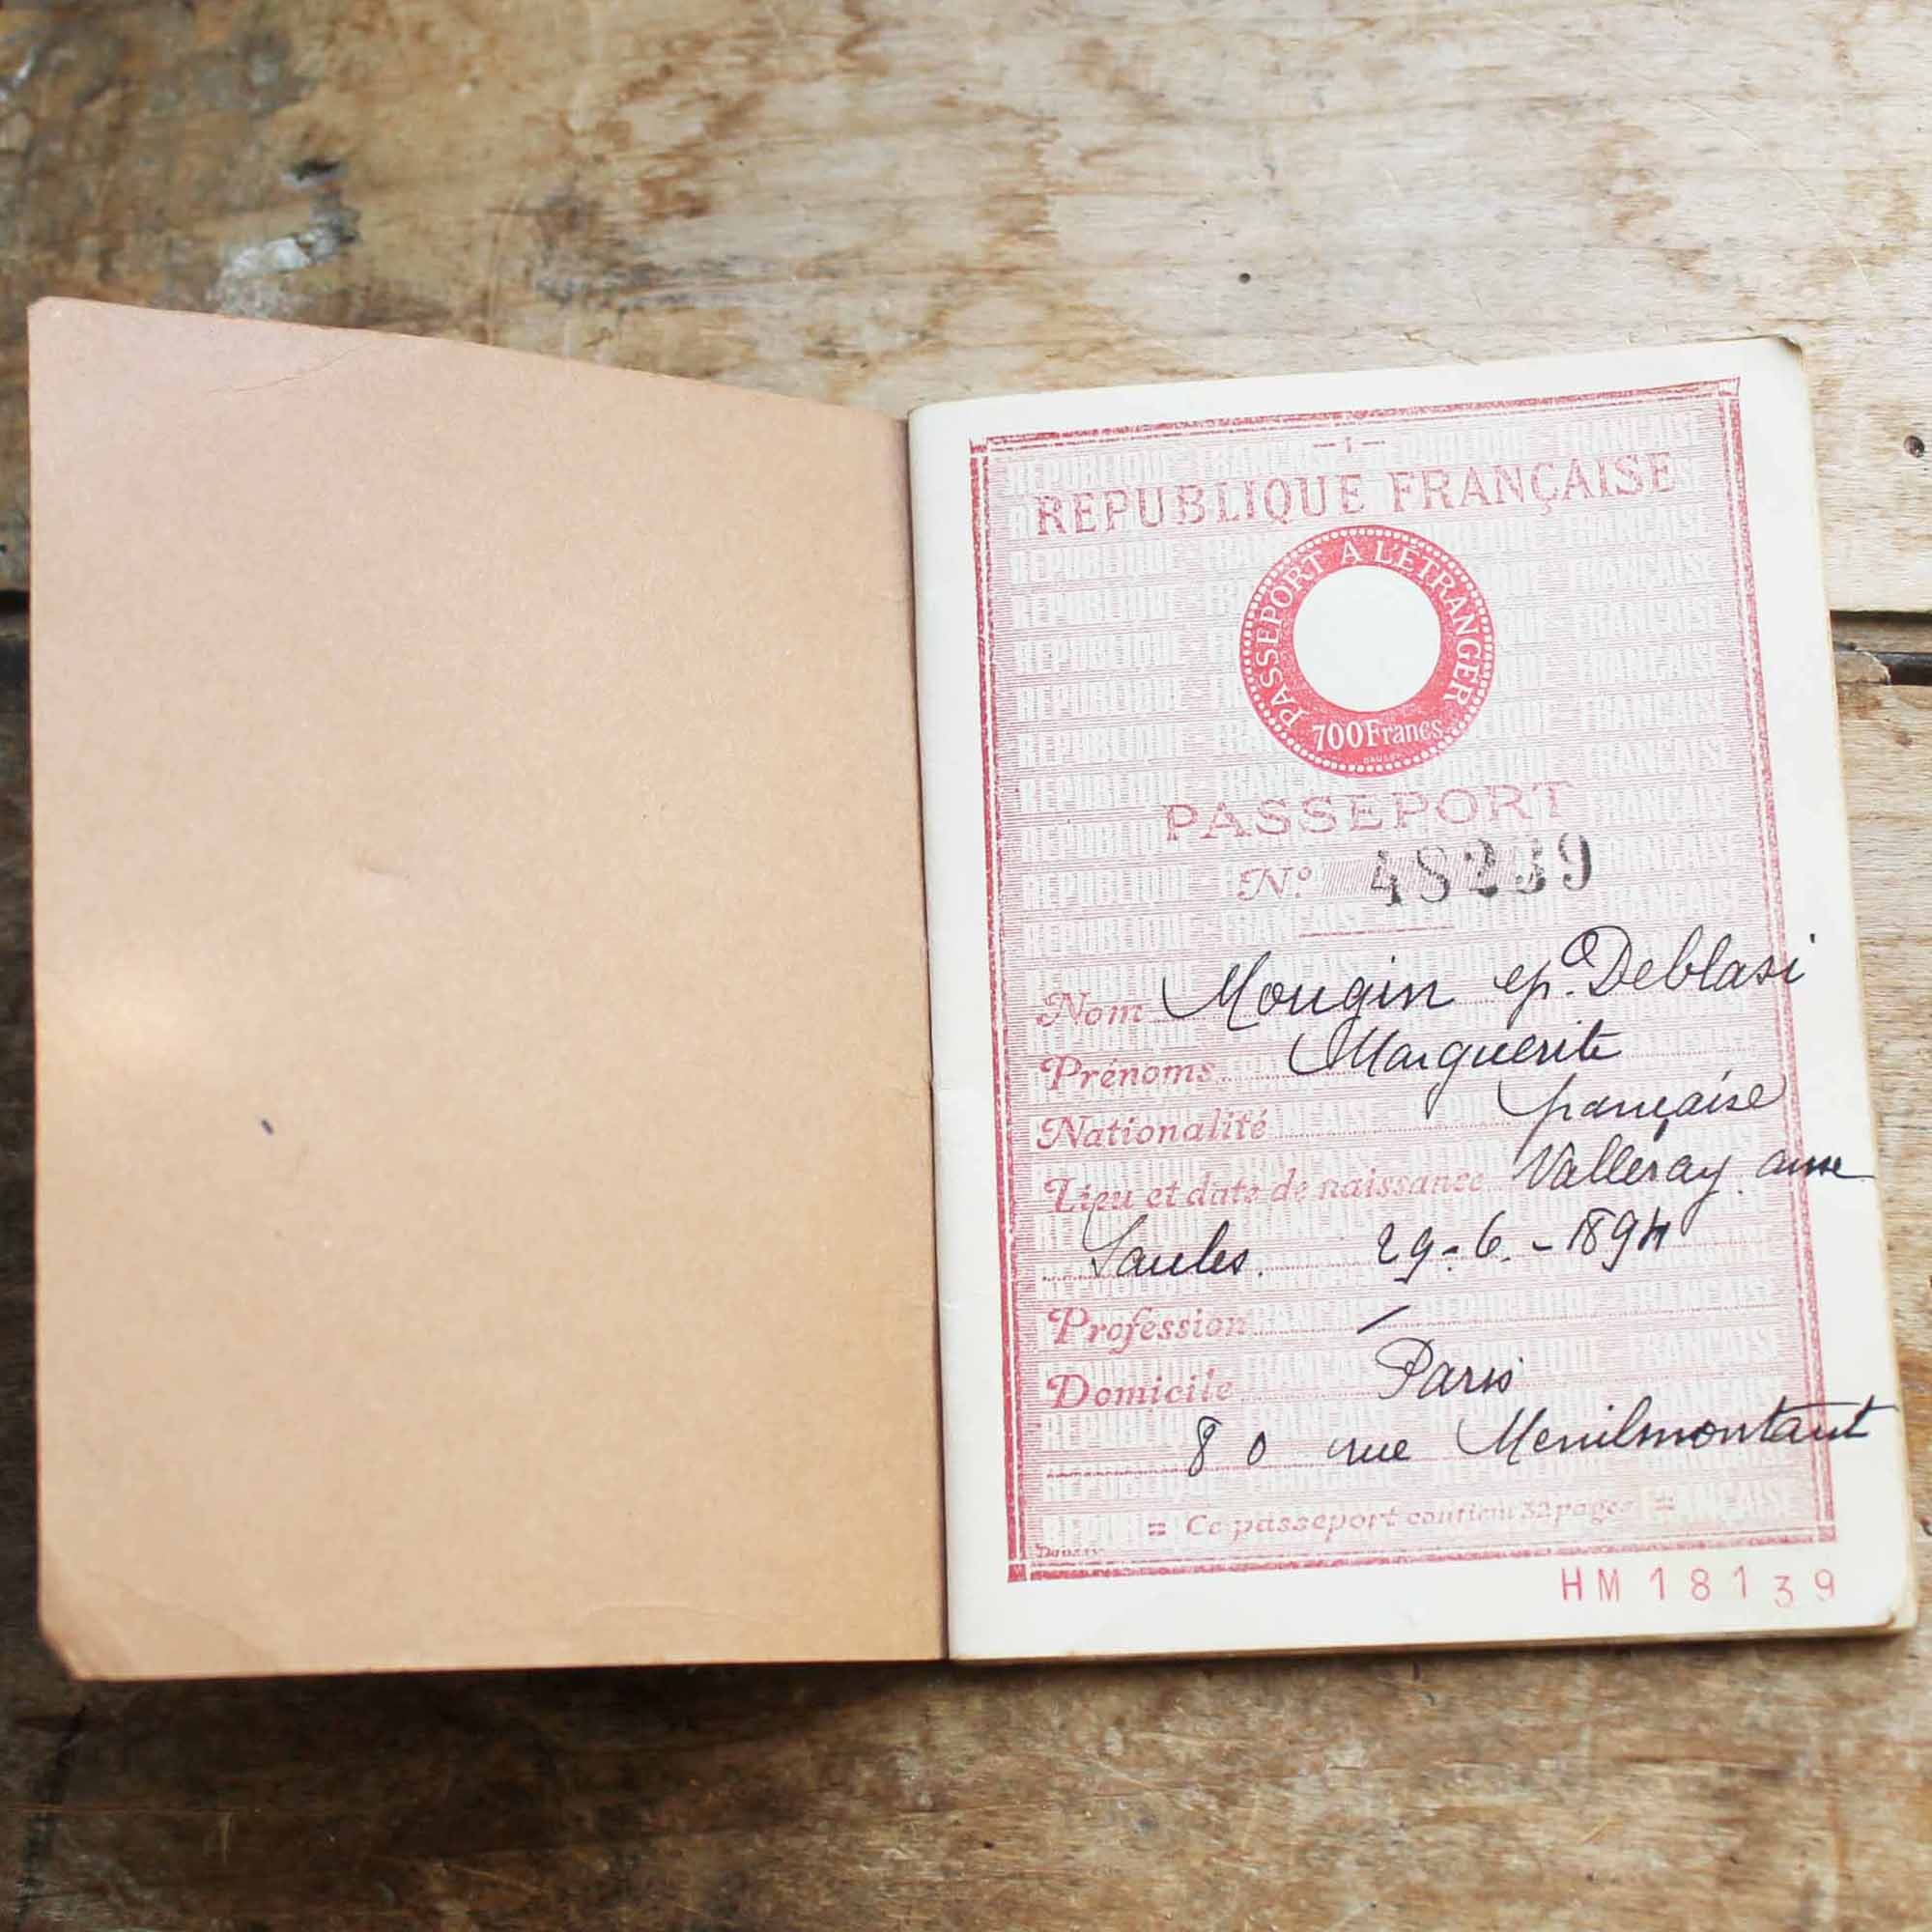 — 1 —
REPUBLIQUE FRANÇAISE
PASSEPORT A L'ÉTRANGER
700 Francs
PASSEPORT
N° 48239
Nom Mougin ép. Deblasi
Prénoms Marguerite
Nationalité française
Lieu et date de naissance Valleray aux
Saules. 29-6-1894
Profession /
Domicile Paris
80 rue Menilmontant
= Ce passeport contient 32 pages =
HM 18139